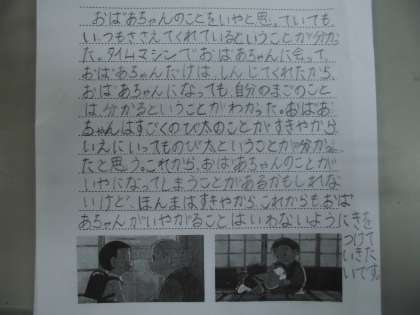 おばあちゃんのことをいやと思っていても、
いつもささえてくれているということが分かっ
た。タイムマシンでおばあちゃんに会って、
おばあちゃんだけは、しんじてくれたから、
おばあちゃんになっても、自分のまごのこと
は、分かるということがわかった。おばあ
ちゃんはすごくのび太のことがすきやから
いえにいってものび太ということが分かっ
たと思う。これから、おばあちゃんのことが
いやになってしまうことがあるかもしれな
いけど、ほんまはすきやから、これからもおば
あちゃんがいやがることはいわないようにきを
つけて
いきた
いです。